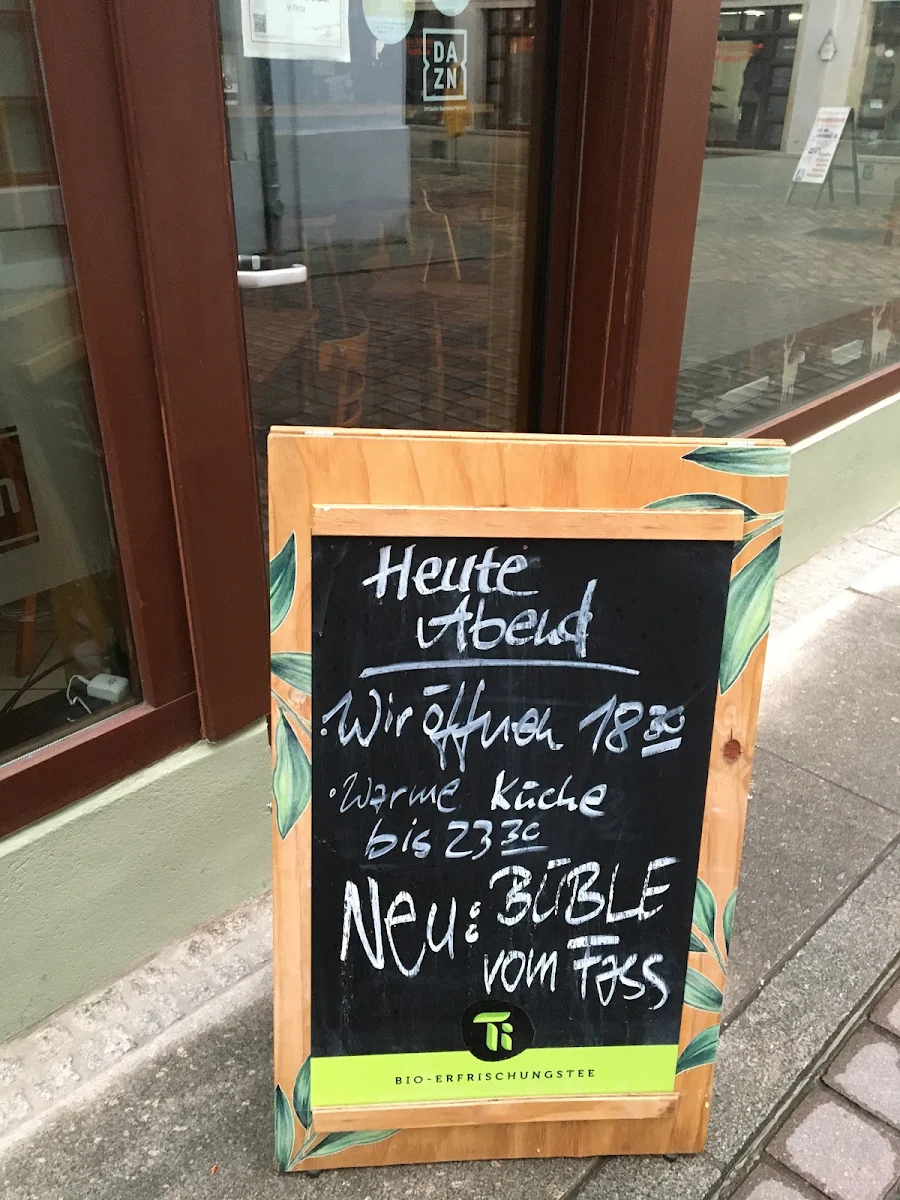 DA
ZN
Heute
Abend
·Wir öffnen 18 30
·Warme Küche
bis 23 30
Neu: BÜBLE
vom Fass
Ti
BIO-ERFRISCHUNGSTEE